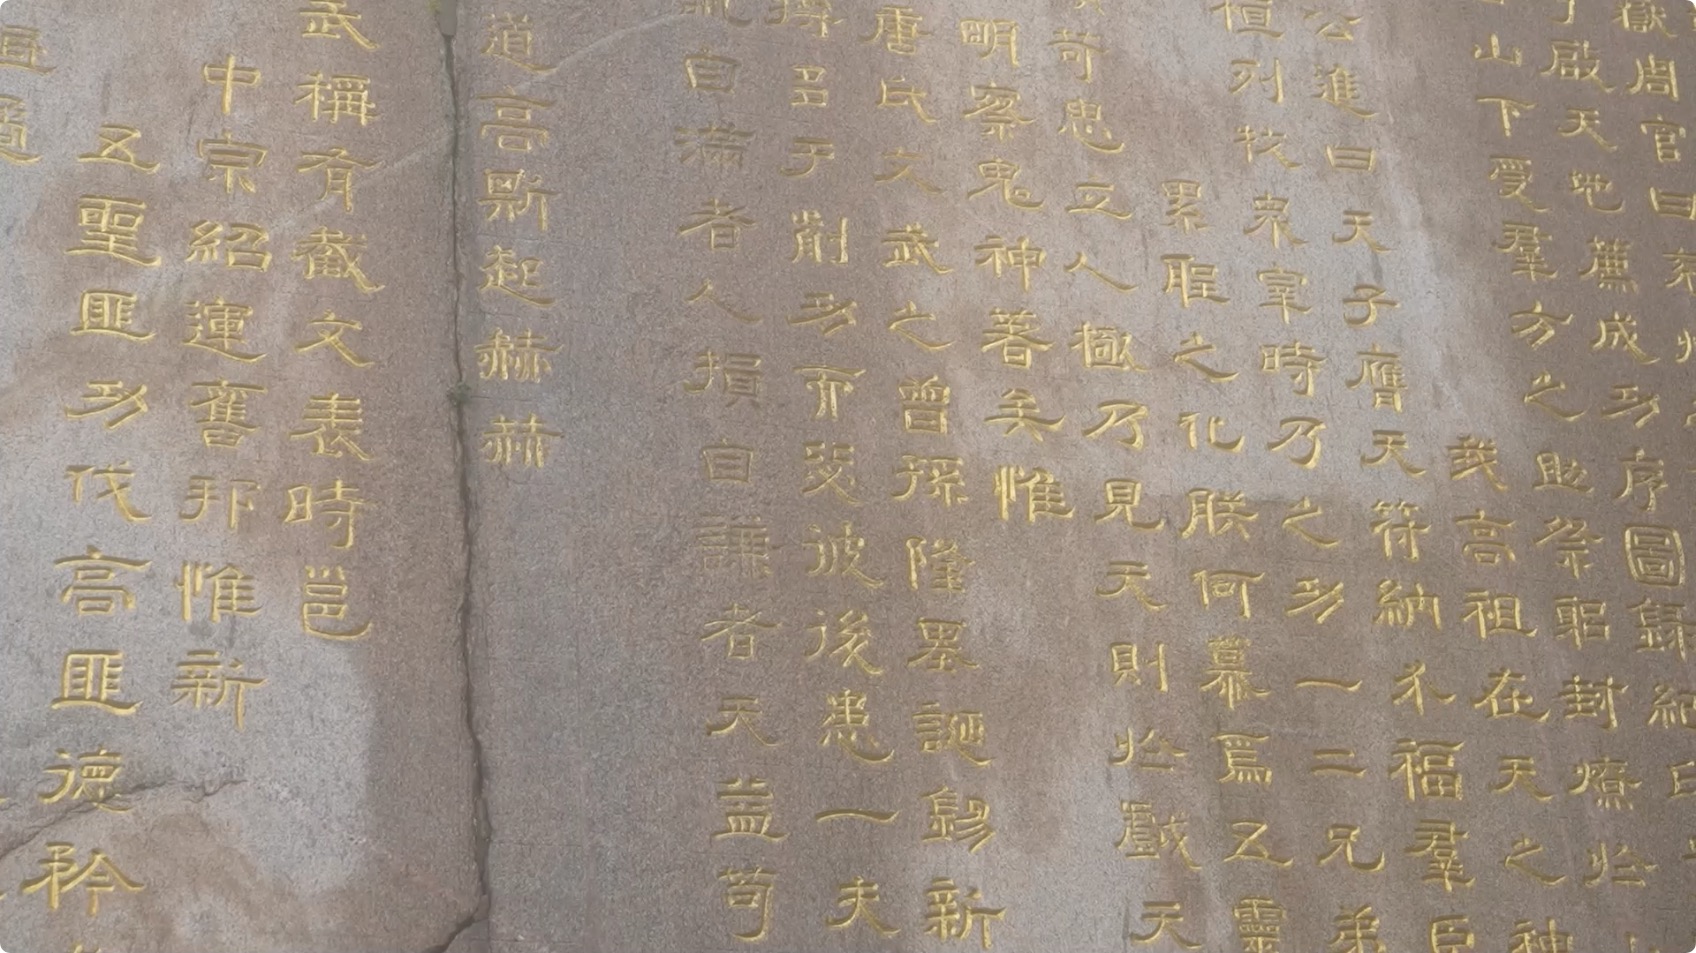 嶽周官曰
啟天地薦成功序圖錄紀
山下受羣方之助祭躬封燎於
我高祖在天之神
公進曰天子膺天符納介福羣臣
列牧衆宰時乃之功一二兄弟
累聖之化朕何慕焉五靈
苛忠立人極乃見天則於戲天
明察鬼神著矣惟
唐氏文武之曾孫隆基誕錫新
多于削功而毖彼後患一夫
自滿者人損自謙者天益苟
道高斯起赫赫
武稱有截文表時邕
中宗紹運舊邦惟新
五聖匪功伐高匪德矜